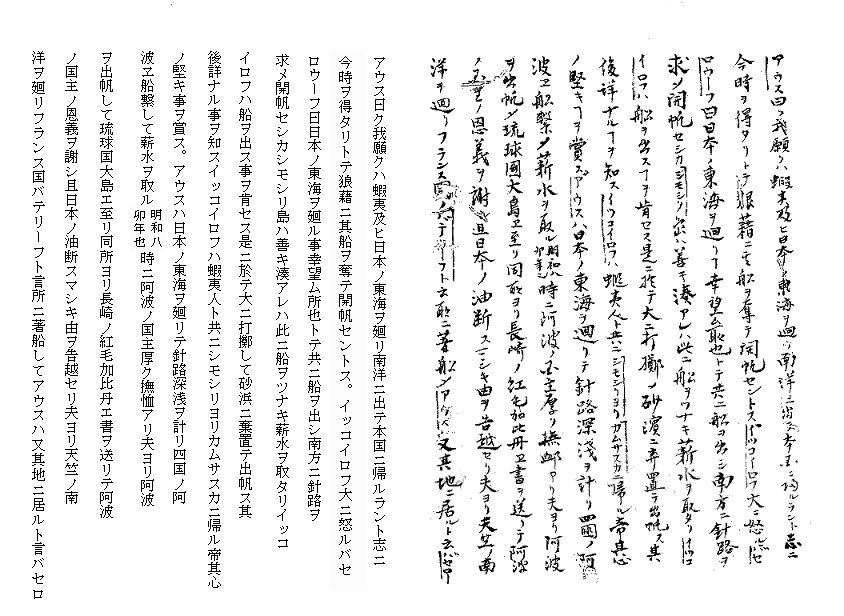 アウス曰ク我願クハ蝦夷及ヒ日本ノ東海ヲ廻リ南洋ニ出テ本国ニ帰ルラント志ニ
今時ヲ得タリトテ狼藉ニ其船ヲ奪テ開帆セントスイツコイロフ大ニ怒ルバセ
ロウーフ曰日本ノ東海ヲ廻ル事幸望ム所也トテ共ニ船ヲ出シ南方ニ針路ヲ
求メ開帆セシカシモシリノ島ハ善キ湊アレハ此ニ船ヲツナキ薪水ヲ取タリイツコ
イロフハ船ヲ出スヿヲ肯セス是ニ於テ大ニ打擲シ砂濱ニ棄置テ出帆ス其
後詳ナルヿヲ知スイツコイロフハ蝦夷人ト共ニシモシリヨリカムサスカニ帰ル帝其心
ノ堅キヿヲ賞スアウスハ日本ノ東海ヲ廻リテ針路深浅ヲ計リ四國ノ阿
波ヱ船繋メ薪水ヲ取ル明和八卯年也時ニ阿波ノ国主厚ク撫卹アリ夫ヨリ阿波
ヲ出帆メ琉球國大島ヱ至リ同所ヨリ長崎ノ紅毛加比丹ヱ書ヲ送リテ阿波
ノ国主ノ恩義ヲ謝シ且日本ノ油断スマシキ由ヲ告越セリ夫ヨリ天竺ノ南
洋ヲ廻リフランス国バテリーフト云所ニ著船メアウスハ又其地ニ居ルト云バセロ
アウス曰ク我願クハ蝦夷及ヒ日本ノ東海ヲ廻リ南洋ニ出テ本国ニ帰ルラント志ニ
今時ヲ得タリトテ狼藉ニ其船ヲ奪テ開帆セントス。イッコイロフ大ニ怒ルバセ
ロウーフ曰日本ノ東海ヲ廻ル事幸望ム所也トテ共ニ船ヲ出シ南方ニ針路ヲ
求メ開帆セシカシモシリ島ハ善キ湊アレハ此ニ船ヲツナキ薪水ヲ取タリイッコ
イロフハ船ヲ出ス事ヲ肯セス是ニ於テ大ニ打擲して砂浜ニ棄置テ出帆ス其
後詳ナル事ヲ知スイッコイロフハ蝦夷人ト共ニシモシリヨリカムサスカニ帰ル帝其心
ノ堅キ事ヲ賞ス。アウスハ日本ノ東海ヲ廻リテ針路深浅ヲ計リ四国ノ阿
波ヱ船繋して薪水ヲ取ル明和八卯年也時ニ阿波ノ国主厚ク撫恤アリ夫ヨリ阿波
ヲ出帆して琉球国大島エ至リ同所ヨリ長崎ノ紅毛加比丹エ書ヲ送リテ阿波
ノ国主ノ恩義ヲ謝シ且日本ノ油断スマシキ由ヲ告越セリ夫ヨリ天竺ノ南
洋ヲ廻リフランス国バテリーフト言所ニ著船してアウスハ又其地ニ居ルト言バセロ